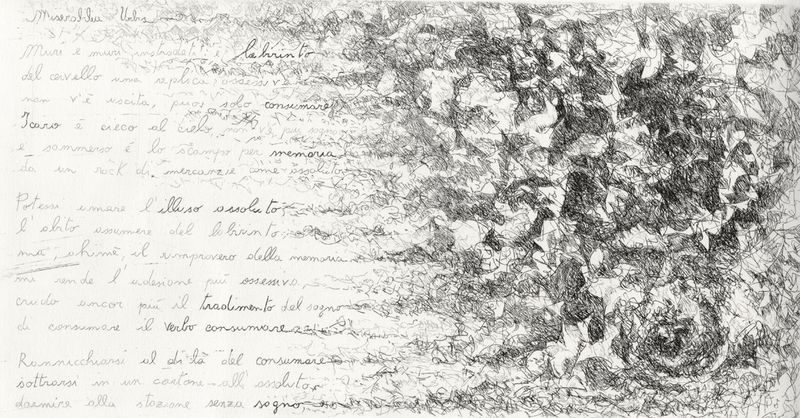 Miserabile Urbs
Muri e muri, instradati i labirinto
del cervello una replica ossessiva
non v'è uscita, puoi solo consumare
Icaro è cieco al cielo, non v'è più sogno
e sommerso è lo scampo per memoria
da un rock di mercanzie come assoluto.
Potessi amare l'illuso assoluto,
l'abito assumere del labirinto,
ma, ahimè, il rimprovero della memoria
mi rende l'adesione più ossessiva,
crudo ancor più il tradimento del sogno
di consumare il verbo consumare.
Rannicchiarsi al di là del consumare
sottrarsi in un cartone all'assoluto,
dormire alla stazione senza sogno,